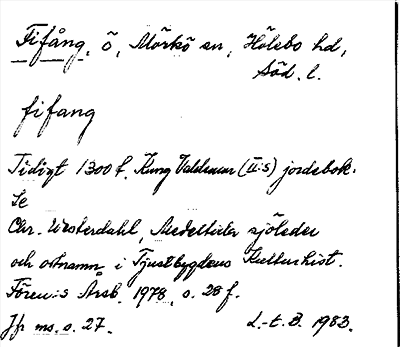 Fifång, ö, Mörkö sn, Hölebo hd,
Söd. l.
fifang
Tidigt 1300 t. Kung Valdemar (II:s) jordebok.
Se
Chr. Westerdahl, Medeltida sjöleder
och ortnamn i Tjustbygdens Kulturhist.
Fören:s Årsb. 1978, s. 28 f.
Jfr ms. s. 27. L.-t. B. 1983.